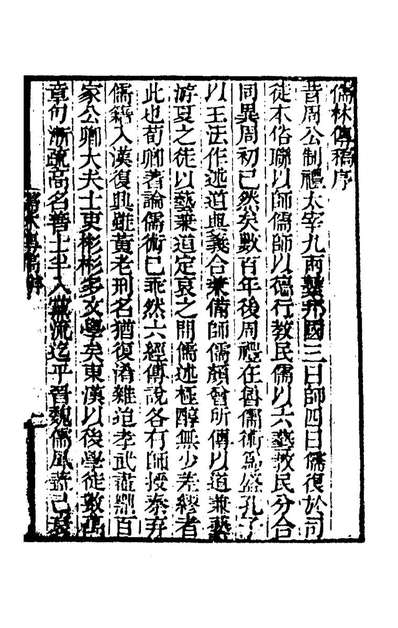 儒林傳稿序
昔周公制禮太宰九兩繫邦國三曰師四曰儒復於司
徒本俗聯以師儒師以德行教民儒以六藝教民分合
同異周初已然矣數百年後周禮在魯儒術為盛孔子
以王法作述道與藝合兼備師儒顏曾所傳以道兼藝
游夏之徒以藝兼道定哀之間儒述極醇無少差繆者
此也荀卿著論儒術已乖然六經傳說各有師授秦弃
儒籍入漢復興雖黃老刑名猶復淆雜迨孝武盡黜百
家公卿大夫士吏彬彬多文學矣東漢以後學徒數萬
章句漸疏高名善士半入黨流迄乎晉魏儒風蓋已衰
儒林傳稿序
一